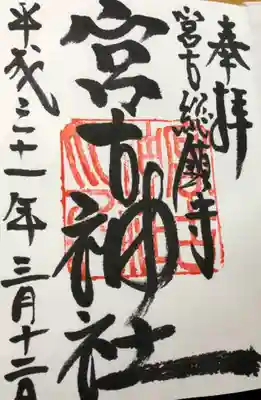 奉拝
宮古総鎮守
宮古神社
平成三十一年三月十二日